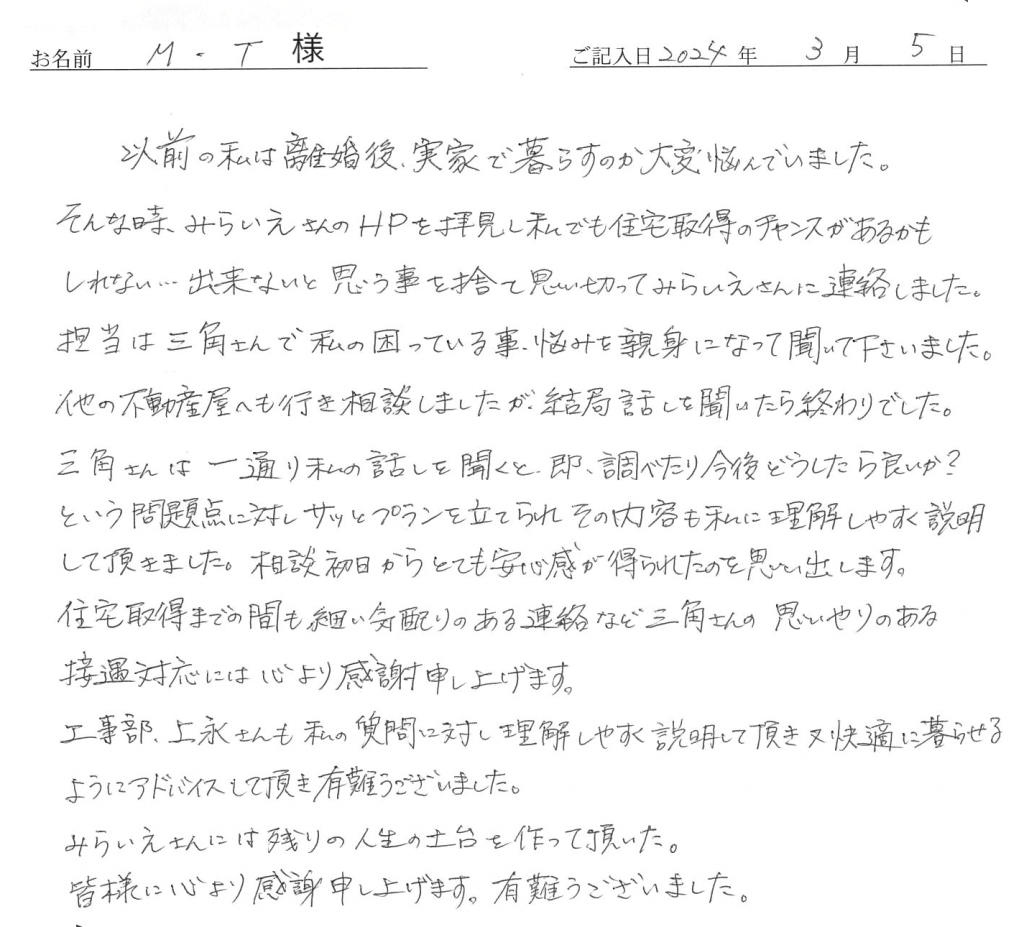 お名前 M・T 様 ご記入日 2024 年 3 月 5 日
以前の私は離婚後、実家で暮らすのか大変悩んでいました。
そんな時、みらいえさんのHPを拝見し私でも住宅取得のチャンスがあるかも
しれない…出来ないと思う事を捨て思い切ってみらいえさんに連絡しました。
担当は三角さんで私の困っている事、悩みを親身になって聞いて下さいました。
他の不動産屋へも行き相談しましたが、結局話しを聞いたら終わりでした。
三角さんは一通り私の話しを聞くと、即、調べたり今後どうしたら良いか?
という問題点に対しサッとプランを立てられその内容も私に理解しやすく説明
して頂きました。相談初日からとても安心感が得られたのを思い出します。
住宅取得までの間も細い気配りのある連絡など三角さんの思いやりのある
接遇対応には心より感謝申し上げます。
工事部、上永さんも私の質問に対し理解しやすく説明して頂き又快適に暮らせる
ようにアドバイスして頂き有難うございました。
みらいえさんには残りの人生の土台を作って頂いた。
皆様に心より感謝申し上げます。有難うございました。